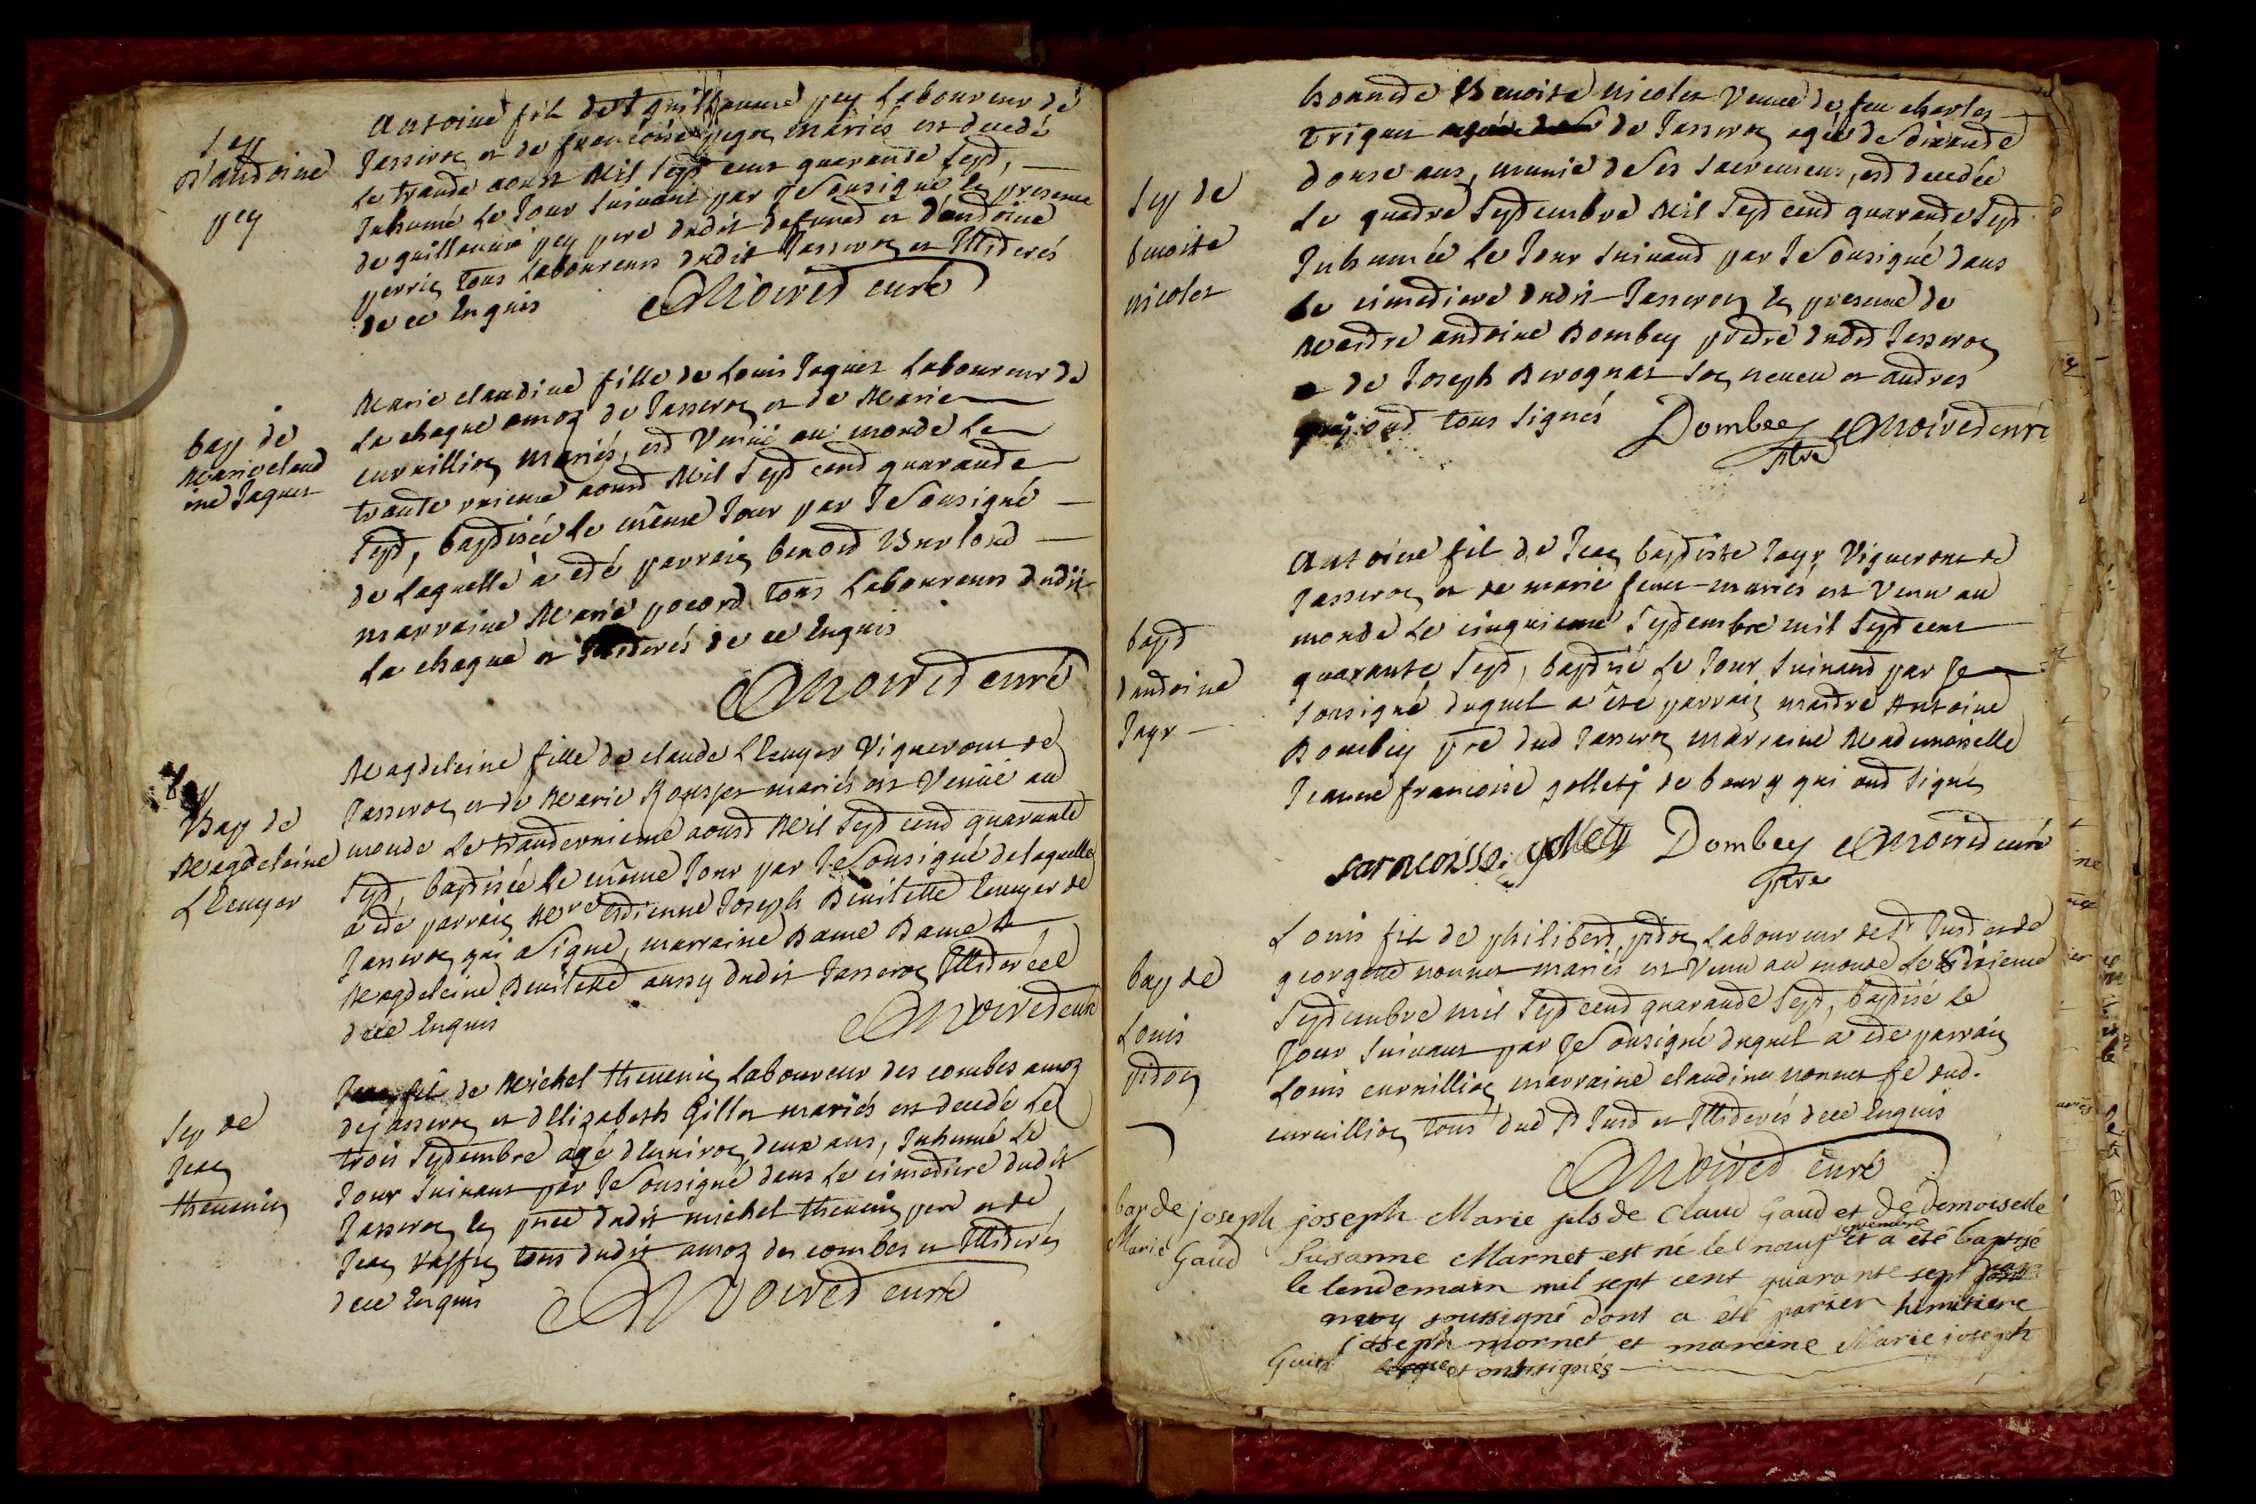 Sep
d'antoine
pey
antoine fil de guillaume pey Laboureur de
Jasseron et de francoise mariés est decedé
Le trante aoust Mil Sept cent quarante Sept,
Inhumé Le Jour Suivant par Je Sousigné En presence
de guillaume pey pere dudit defunct et d'antoine
perrin tous Laboureurs dudit Jasseron et Illiterés
de ce Enquis Moiret curé
bap de
Marie claud
ine Jaquet
Marie claudine fille de Louis Jaquet Laboureur de
La chagne amoz de Jasseron et de Marie
curnillion mariés, est Venüe au monde Le
trante unieme aoust Mil Sept cent quarante
Sept, baptisée Le même Jour par Je Sousigné
de Laquelle a eté parrain benoit
marraine Marie tous Laboureurs dudit
La chagne et Illiterés de ce Enquis
Moiret curé
Bap de
Magdeleine
LEcuyer
Magdeleine fille de claude LEcuyer Vigneron de
Jasseron et de Marie mariés est Venüe au
monde Le tranteunieme aoust Mil Sept cent quarante
Sept, baptisée Le même Jour par Je Sousigné de laquelle
a eté parrain Mre Etienne Joseph Ecuyer de
Jasseron qui a Signé, marraine Dame Dame
Magdeleine aussy dudit Jasseron Illiterée
de ce Enquis Moiret curé
Sep de
Jean
thevenin
Jean fil de Michel thevenin Laboureur des combes amoz
de Jasseron et dElizabeth Gillet mariés est decedé Le
trois Septembre agé dEnviron deux ans, Inhumé Le
Jour Suivant par Je Sousigné dans Le cimetiere dudit
Jasseron En pnce dudit michel thevenin pere et de
Jean tous dudit amoz des combes et Illiterés
de ce Enquis Moiret curé
Sep de
benoite
nicolet
honnete Benoite nicolet Veuve de feu charles
de Jasseron agée de Soixante
douse ans, munie de Ses Sacremens, est decedée
Le quatre Septembre Mil Sept cent quarante Sept
Inhumée Le Jour Suivant par Je Sousigné dans
Le cimetiere dudit Jasseron En presence de
Maitre antoine Dombey pretre dudt Jasseron
de Joseph Son neveu et autres
qui ont tous Signés Dombey Moiret curé
ptre
bapt
dantoine
Jayr
Antoine fil de Jean baptiste Jayr Vigneron de
Jasseron et de marie mariés est Venu au
monde Le cinquieme Septembre mil Sept cent
quarante Sept, baptisé Le Jour Suivant par Je
Sousigné duquel a été parrain maitre Antoine
Dombey ptre dud Jasseron marraine Mademoiselle
Jeanne francoise gollety de bourg qui ont Signé
francoisse gollety Dombey Moiret curé
ptre
bap de
Louis
pidon
Louis fil de philibert pidon Laboureur de St Just et de
georgette nonnet mariés est Venu au monde Le Sixieme
Septembre mil Sept cent quarante Sept, baptisé Le
Jour Suivant par Je Sousigné duquel a eté parrain
Louis curnillion marraine claudine nonnet fe dud.
curnillion tous dud St Just et Illiterés de ce Enquis
Moiret curé
bap de joseph
Marie
Gaud
joseph Marie fils de Claud Gaud et De Demoiselle
septembre
Susanne Marnet est né le neuf et a eté baptisé
le lendemain mil sept cent quarante sept par
moy soussigné dont a été parien
joseph mornet et mareine Marie joseph
et ont signés